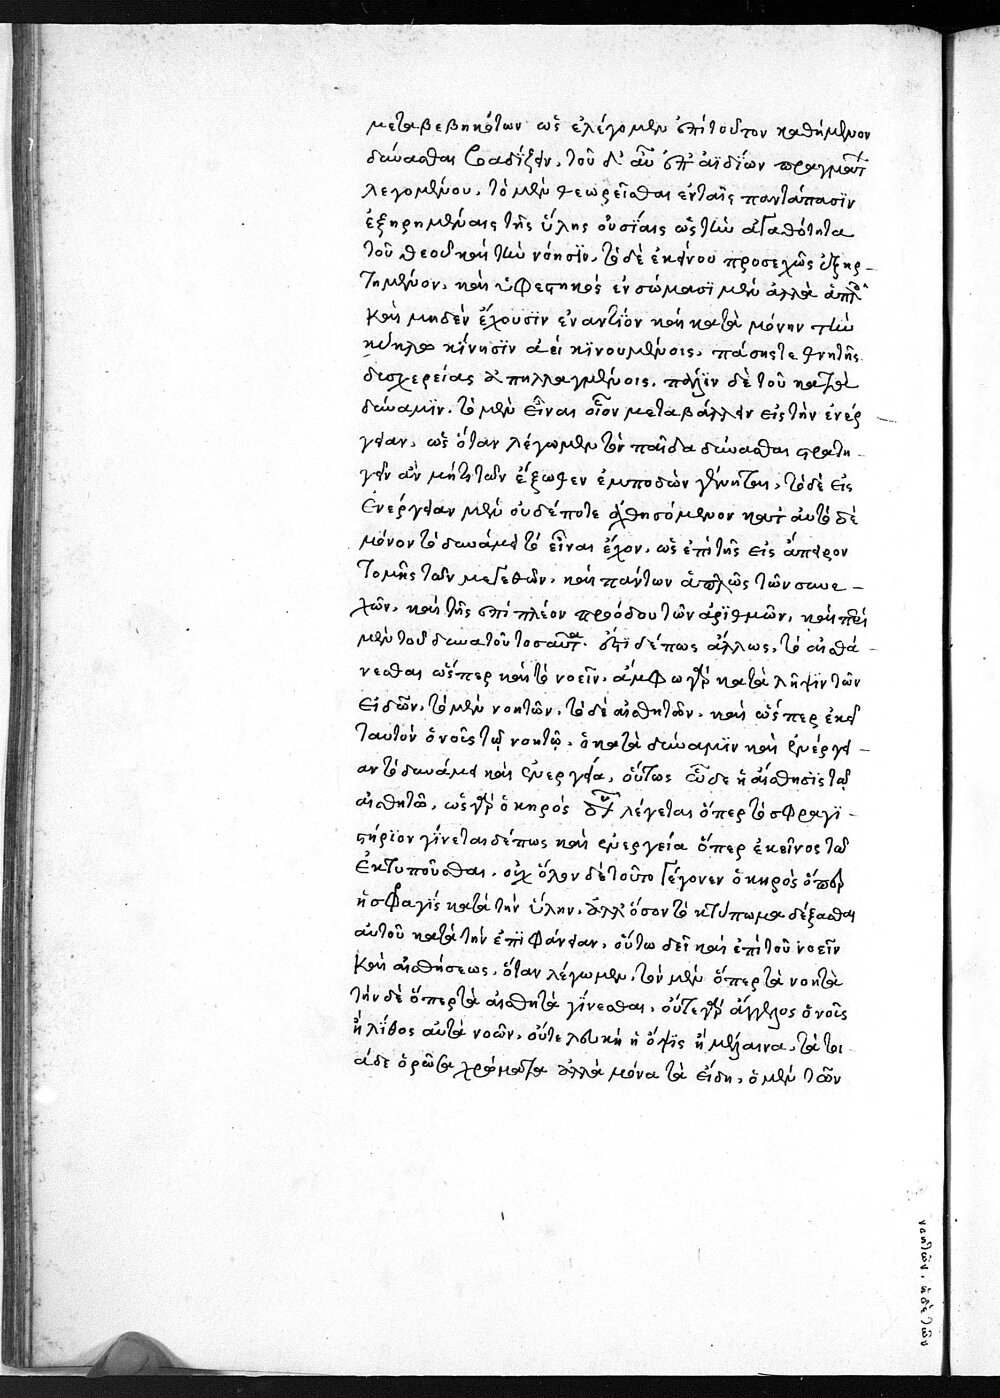 μεταβεβηκότων ὡς ἐλέγομεν ἐπὶ τοῦ τὸν καθήμενον
δύνασθαι βαδίζειν. τοῦ δ' αὖ ἐπ' ἀϊδίων πραγμάτ
λεγομένου, τὸ μὲν θεωρεῖσθαι ἐν ταῖς παντάπασιν
ἐξῃρημέναις τῆς ὕλης οὐσίαις ὡς τὴν ἀγαθότητα
τοῦ θεοῦ καὶ τὴν νόησιν. τὸ δὲ ἐκείνου προσεχῶς ἐξηρ-
τημένον, καὶ ὑφεστηκὸς ἐν σώμασι μὲν ἀλλὰ ἁπλ
καὶ μηδὲν ἔχουσιν ἐναντίον καὶ κατὰ μόνην τὴν
κύκλῳ κίνησιν ἀεὶ κινουμένοις, πάσης τε θνητῆς
δυσχερείας ἀπηλλαγμένοις. πάλιν δὲ τοῦ κατὰ
δύναμιν. τὸ μὲν εἶναι οἷον μεταβάλλειν εἰς τὴν ἐνέρ
γειαν, ὡς ὅταν λέγωμεν τὸν παῖδα δύνασθαι στρατη-
γεῖν ἂν μή τι τῶν ἔξωθεν ἐμποδὼν γένηται, τὸ δὲ εἰς
ἐνέργειαν μὲν οὐδέποτε ἀχθησόμενον κατ' αὐτὸ δὲ
μόνον τὸ δυνάμει τὸ εἶναι ἔχον. ὡς ἐπὶ τῆς εἰς ἄπειρον
τομῆς τῶν μεγεθῶν, καὶ πάντων ἁπλῶς τῶν συνε-
χῶν, καὶ τῆς ἐπὶ πλέον προόδου τῶν ἀριθμῶν. καὶ περὶ
μὲν τοῦ δυνατοῦ τοσαῦτα. ἔτι δέ πως ἄλλως, τὸ αἰσθά-
νεσθαι ὥσπερ καὶ τὸ νοεῖν. ἄμφω γὰρ κατάληψιν τῶν
εἰδῶν. τὸ μὲν νοητῶν. τὸ δὲ αἰσθητῶν. καὶ ὥσπερ ἐκεῖ
ταυτὸν ὁ νοῦς τῷ νοητῷ. ὁ κατὰ δύναμιν καὶ ἐνέργει-
αν τὸ δυνάμει καὶ ἐνεργείᾳ, οὕτως ὧδε ἡ αἴσθησις τῷ
αἰσθητῷ, ὡς γὰρ ὁ κηρὸς λέγεται ὅπερ τὸ σφραγι-
στήριον γίνεται δέ πως καὶ ἐνεργείᾳ ὅπερ ἐκεῖνος τῷ
ἐκτυποῦσθαι. οὐχ ὅλον δὲ τοῦτο γέγονεν ὁ κηρὸς ὅπερ
ἡ σφραγὶς κατὰ τὴν ὕλην. ἀλλ' ὅσον τὸ ἐκτύπωμα δέξασθαι
αὐτοῦ κατὰ τὴν ἐπιφάνειαν, οὕτω δεῖ καὶ ἐπὶ τοῦ νοεῖν
καὶ αἰσθήσεως, ὅταν λέγωμεν, τὸν μὲν ὅπερ τὰ νοητὰ
τὴν δὲ ὅπερ τὰ αἰσθητὰ γίνεσθαι, οὔτε γὰρ ἄγγελος ὁ νοῦς
ἢ λίθος αὐτὰ νοῶν, οὔτε λευκὴ ἡ ὄψις ἢ μέλαινα, τὰ τοι-
άδε ὁρῶσα χρώματα ἀλλὰ μόνα τὰ εἴδη, ὁ μὲν τῶν
νοητῶν, ἡ δὲ τῶν